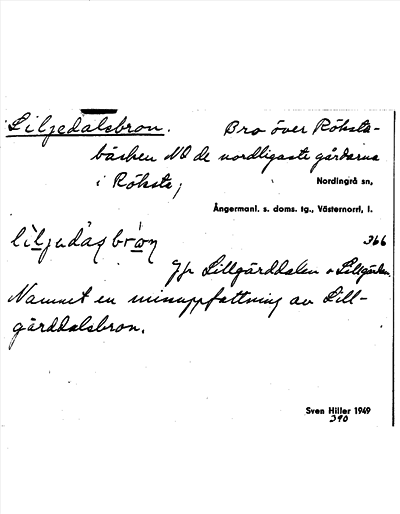 Liljedalsbron. Bro över Röksta-
bäcken NO de nordligaste gårdarna
i Röksta,
Nordingrå sn,
Ångermanl. s. doms. tg., Västernorrl. l.
366
Jfr Lillgårddalen o Lillgården.
Namnet en missuppfattning av Lill-
gårddalsbron.
Sven Hiller 1949
390